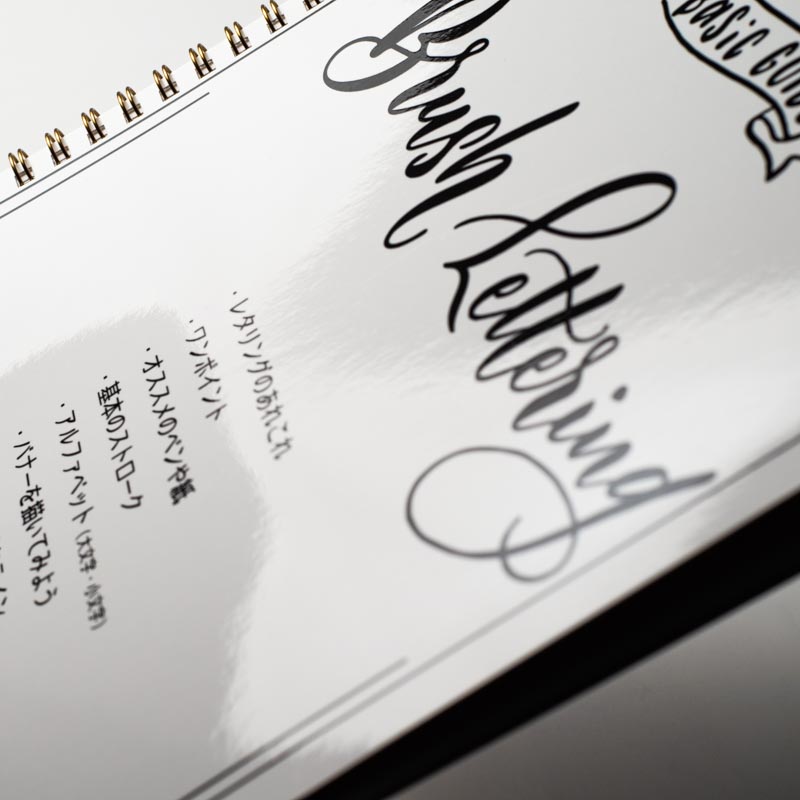 BASIC
Brush
Lettering
・レタリングのあれこれ
・ワンポイント
・オススメのペンや紙
・基本のストローク
・アルファベット（大文字・小文字）
・バナーを描いてみよう